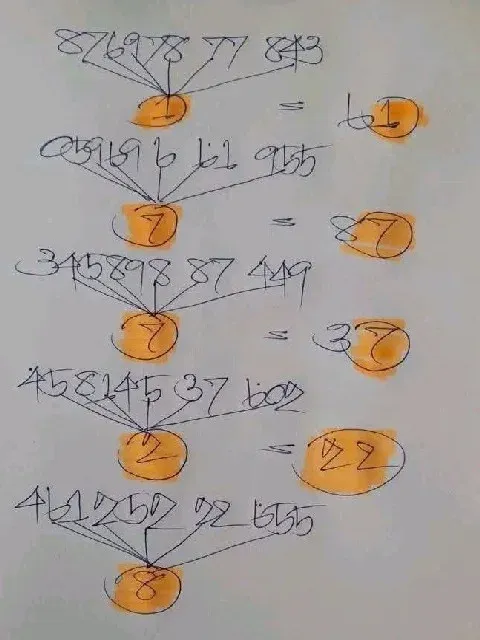 876978 77 843
1 = 61
059696 61 955
7 = 87
345898 87 449
7 = 37
458145 37 602
2 = 22
461252 22 655
8